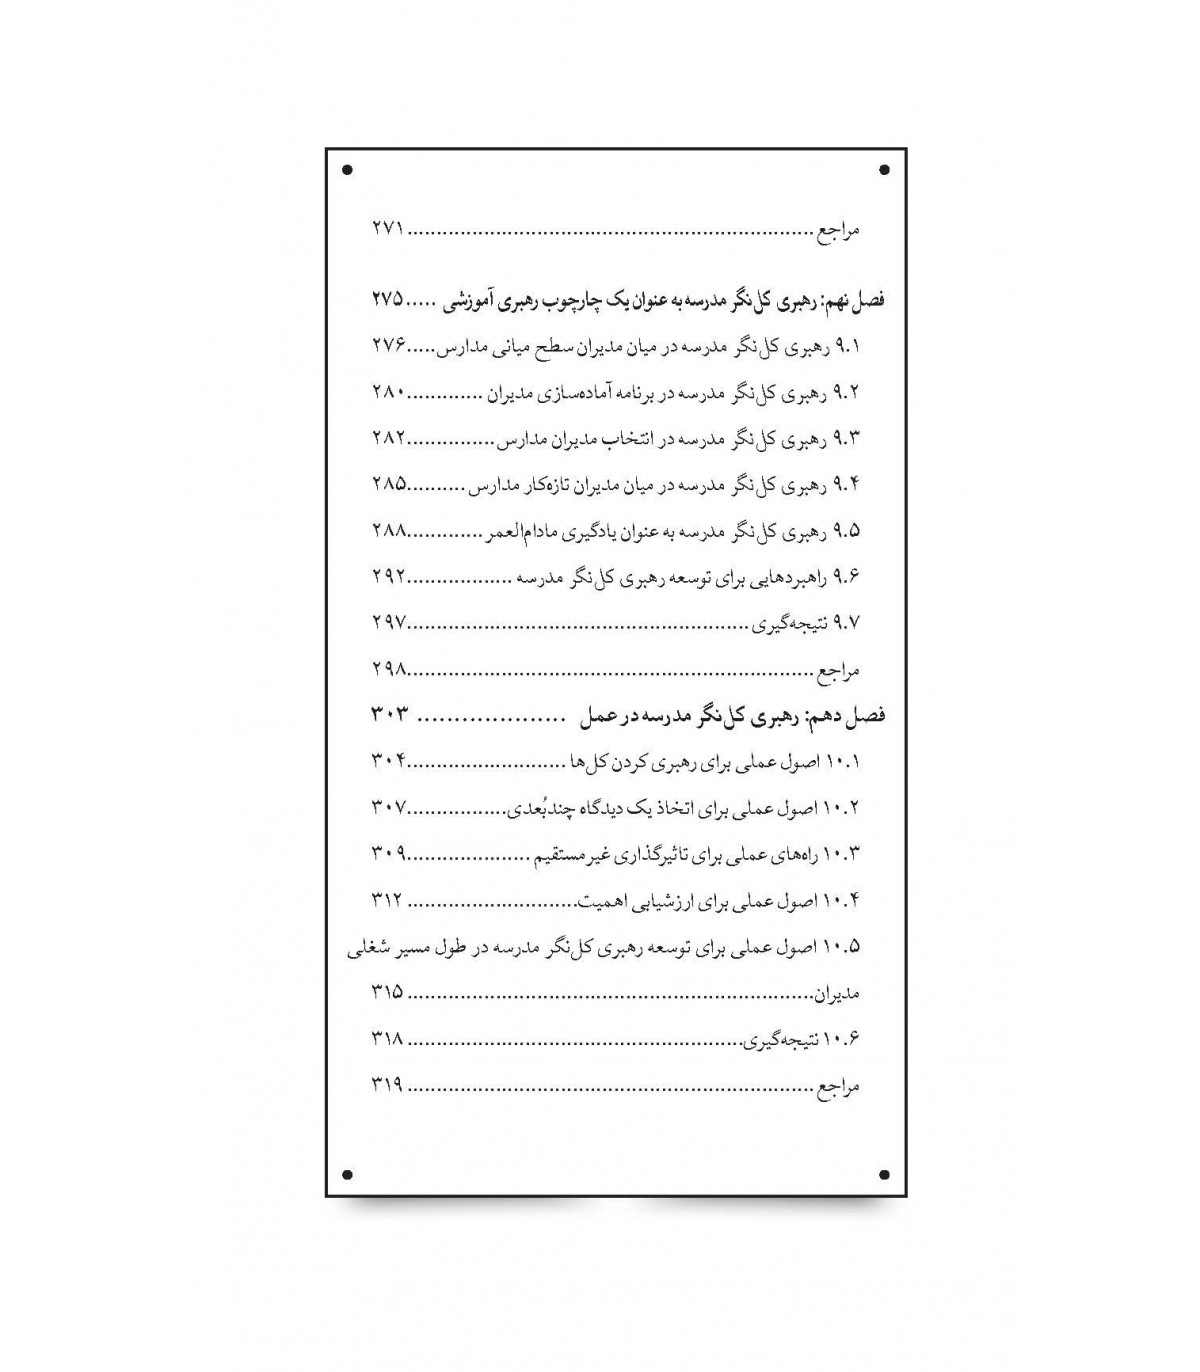 مراجع ........................................................................ ۲۷۱
فصل نهم: رهبری کل‌نگر مدرسه به عنوان یک چارچوب رهبری آموزشی ..... ۲۷۵
۹.۱ رهبری کل‌نگر مدرسه در میان مدیران سطح میانی مدارس..... ۲۷۶
۹.۲ رهبری کل‌نگر مدرسه در برنامه آماده‌سازی مدیران ............. ۲۸۰
۹.۳ رهبری کل‌نگر مدرسه در انتخاب مدیران مدارس ............... ۲۸۲
۹.۴ رهبری کل‌نگر مدرسه در میان مدیران تازه‌کار مدارس .......... ۲۸۵
۹.۵ رهبری کل‌نگر مدرسه به عنوان یادگیری مادام‌العمر ............. ۲۸۸
۹.۶ راهبردهایی برای توسعه رهبری کل‌نگر مدرسه .................. ۲۹۲
۹.۷ نتیجه‌گیری ........................................................... ۲۹۷
مراجع ...................................................................... ۲۹۸
فصل دهم: رهبری کل‌نگر مدرسه در عمل .................... ۳۰۳
۱۰.۱ اصول عملی برای رهبری کردن کل‌ها ........................... ۳۰۴
۱۰.۲ اصول عملی برای اتخاذ یک دیدگاه چندبُعدی ................. ۳۰۷
۱۰.۳ راه‌های عملی برای تاثیرگذاری غیرمستقیم ..................... ۳۰۹
۱۰.۴ اصول عملی برای ارزشیابی اهمیت ............................. ۳۱۲
۱۰.۵ اصول عملی برای توسعه رهبری کل‌نگر مدرسه در طول مسیر شغلی
مدیران ...................................................................... ۳۱۵
۱۰.۶ نتیجه‌گیری .......................................................... ۳۱۸
مراجع ...................................................................... ۳۱۹